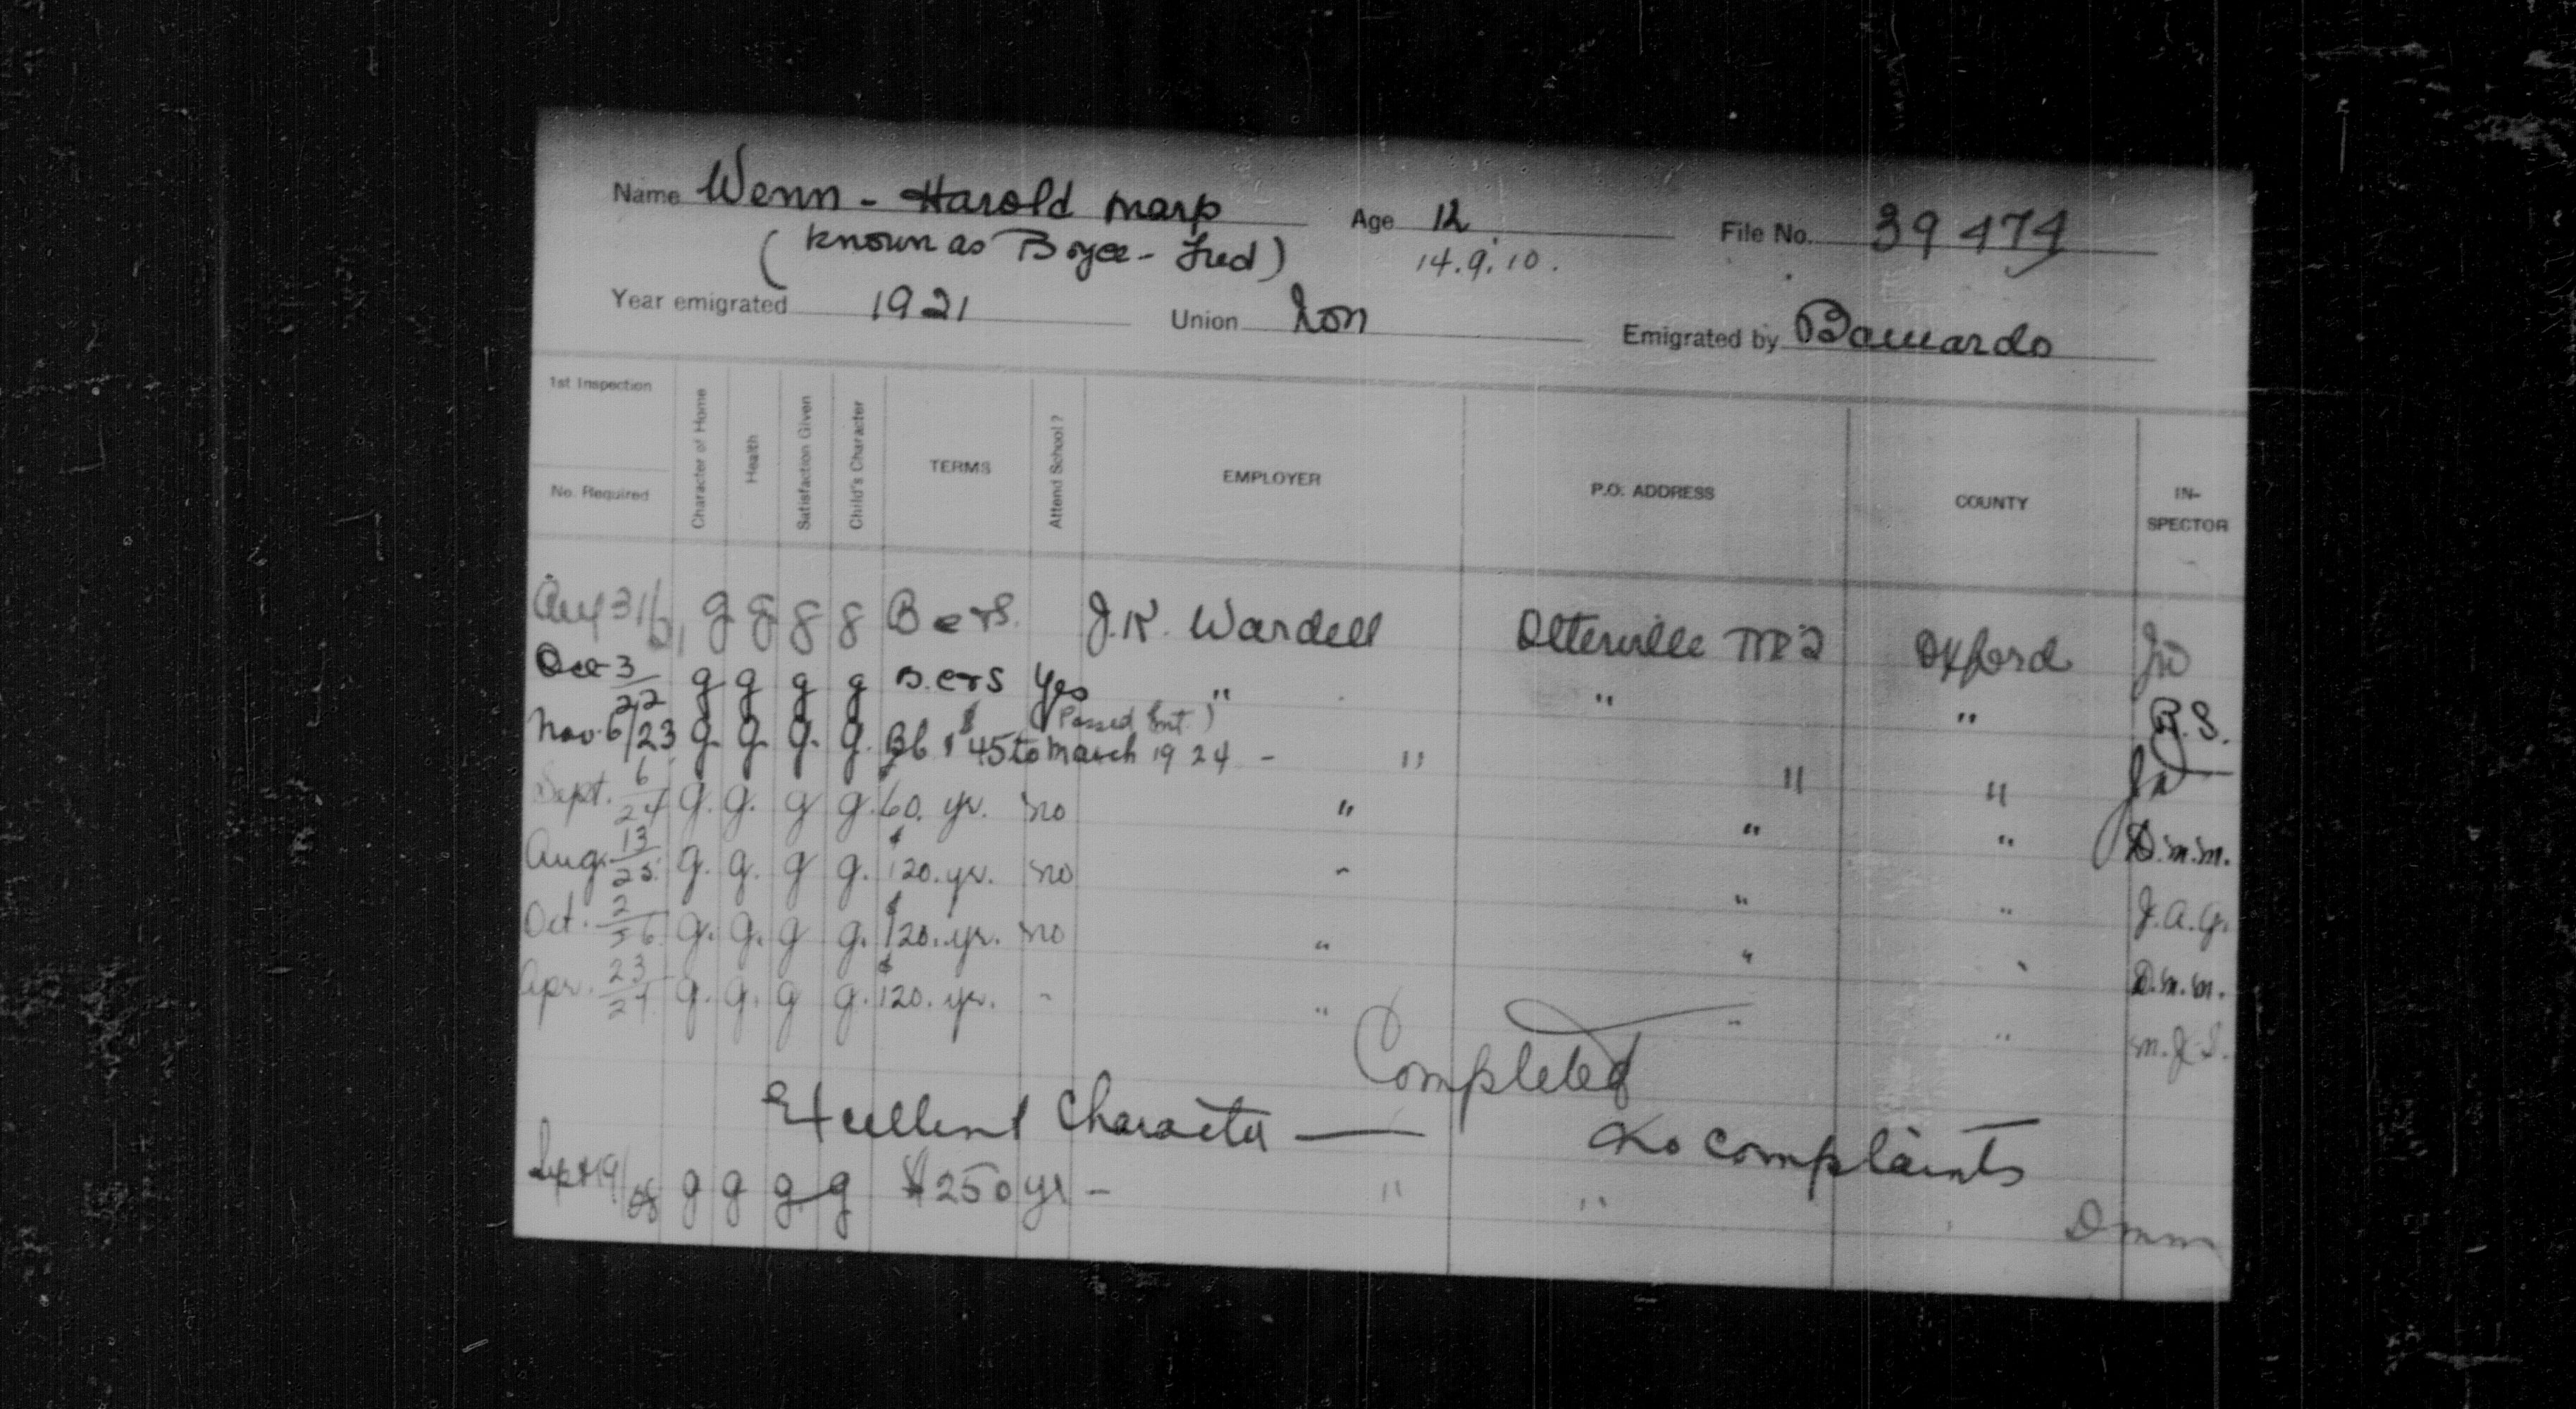 Name Wenn - Harold Marp Age 12 File No. 39474
(known as Boyce - Fred) 14.9.10.
Year emigrated 1921 Union Lon Emigrated by Barnardo
1st Inspection
No. Required
Character of Home Health Satisfaction Given Child's Character TERMS Attend School? EMPLOYER P.O. ADDRESS COUNTY IN-SPECTOR
Aug 31/21 g g g g B e+S. J.K. Wardell Otterville RR2 Oxford
Dec 3/22 g g g g B.e+S Yes " " " R.S.
(Passed Ent.)
Nov. 6/23 g. g. g. g. $45 to March 1924 - " " "
Sept. 6/24 g. g. g g. $60. yr. no " " " D.M.M.
Aug. 13/25. g. g. g g. $120. yr. no " " " J.A.G.
Oct. 2/26. g. g. g g. $120. yr. no " " " D.M.M.
Apr. 23/27. g. g. g g. $120. yr. - " " " M.J.S.
Completed
Excellent Character — No Complaints
Sept 19/28 g g g g $250 yr - " " D M M